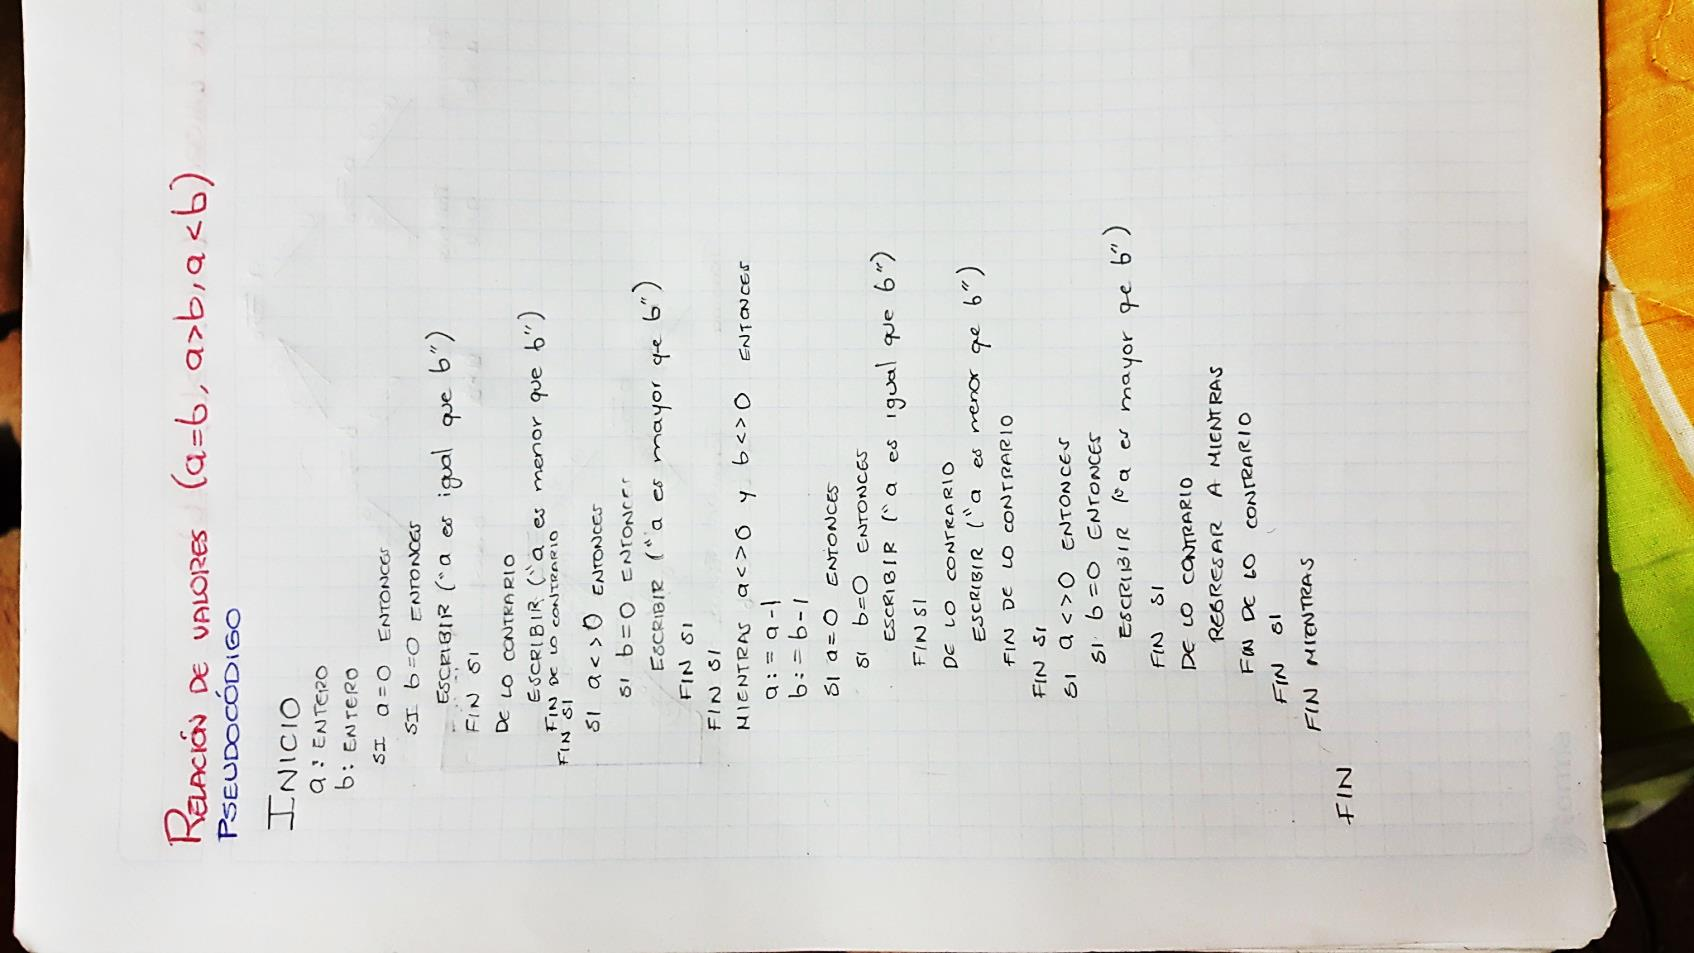 RELACIÓN DE VALORES (a=b, a>b, a<b)
PSEUDOCÓDIGO
INICIO
a: ENTERO
b: ENTERO
SI a=0 ENTONCES
SI b=0 ENTONCES
ESCRIBIR ("a es igual que b")
FIN SI
DE LO CONTRARIO
ESCRIBIR ("a es menor que b")
FIN DE LO CONTRARIO
FIN SI
SI a<>0 ENTONCES
SI b=0 ENTONCES
ESCRIBIR ("a es mayor qe b")
FIN SI
FIN SI
MIENTRAS a<>0 y b<>0 ENTONCES
a:=a-1
b:=b-1
SI a=0 ENTONCES
SI b=0 ENTONCES
ESCRIBIR ("a es igual que b")
FIN SI
DE LO CONTRARIO
ESCRIBIR ("a es menor qe b")
FIN DE LO CONTRARIO
FIN SI
SI a<>0 ENTONCES
SI b=0 ENTONCES
ESCRIBIR ("a es mayor qe b")
FIN SI
DE LO CONTRARIO
REGRESAR A MIENTRAS
FIN DE LO CONTRARIO
FIN SI
FIN MIENTRAS
FIN